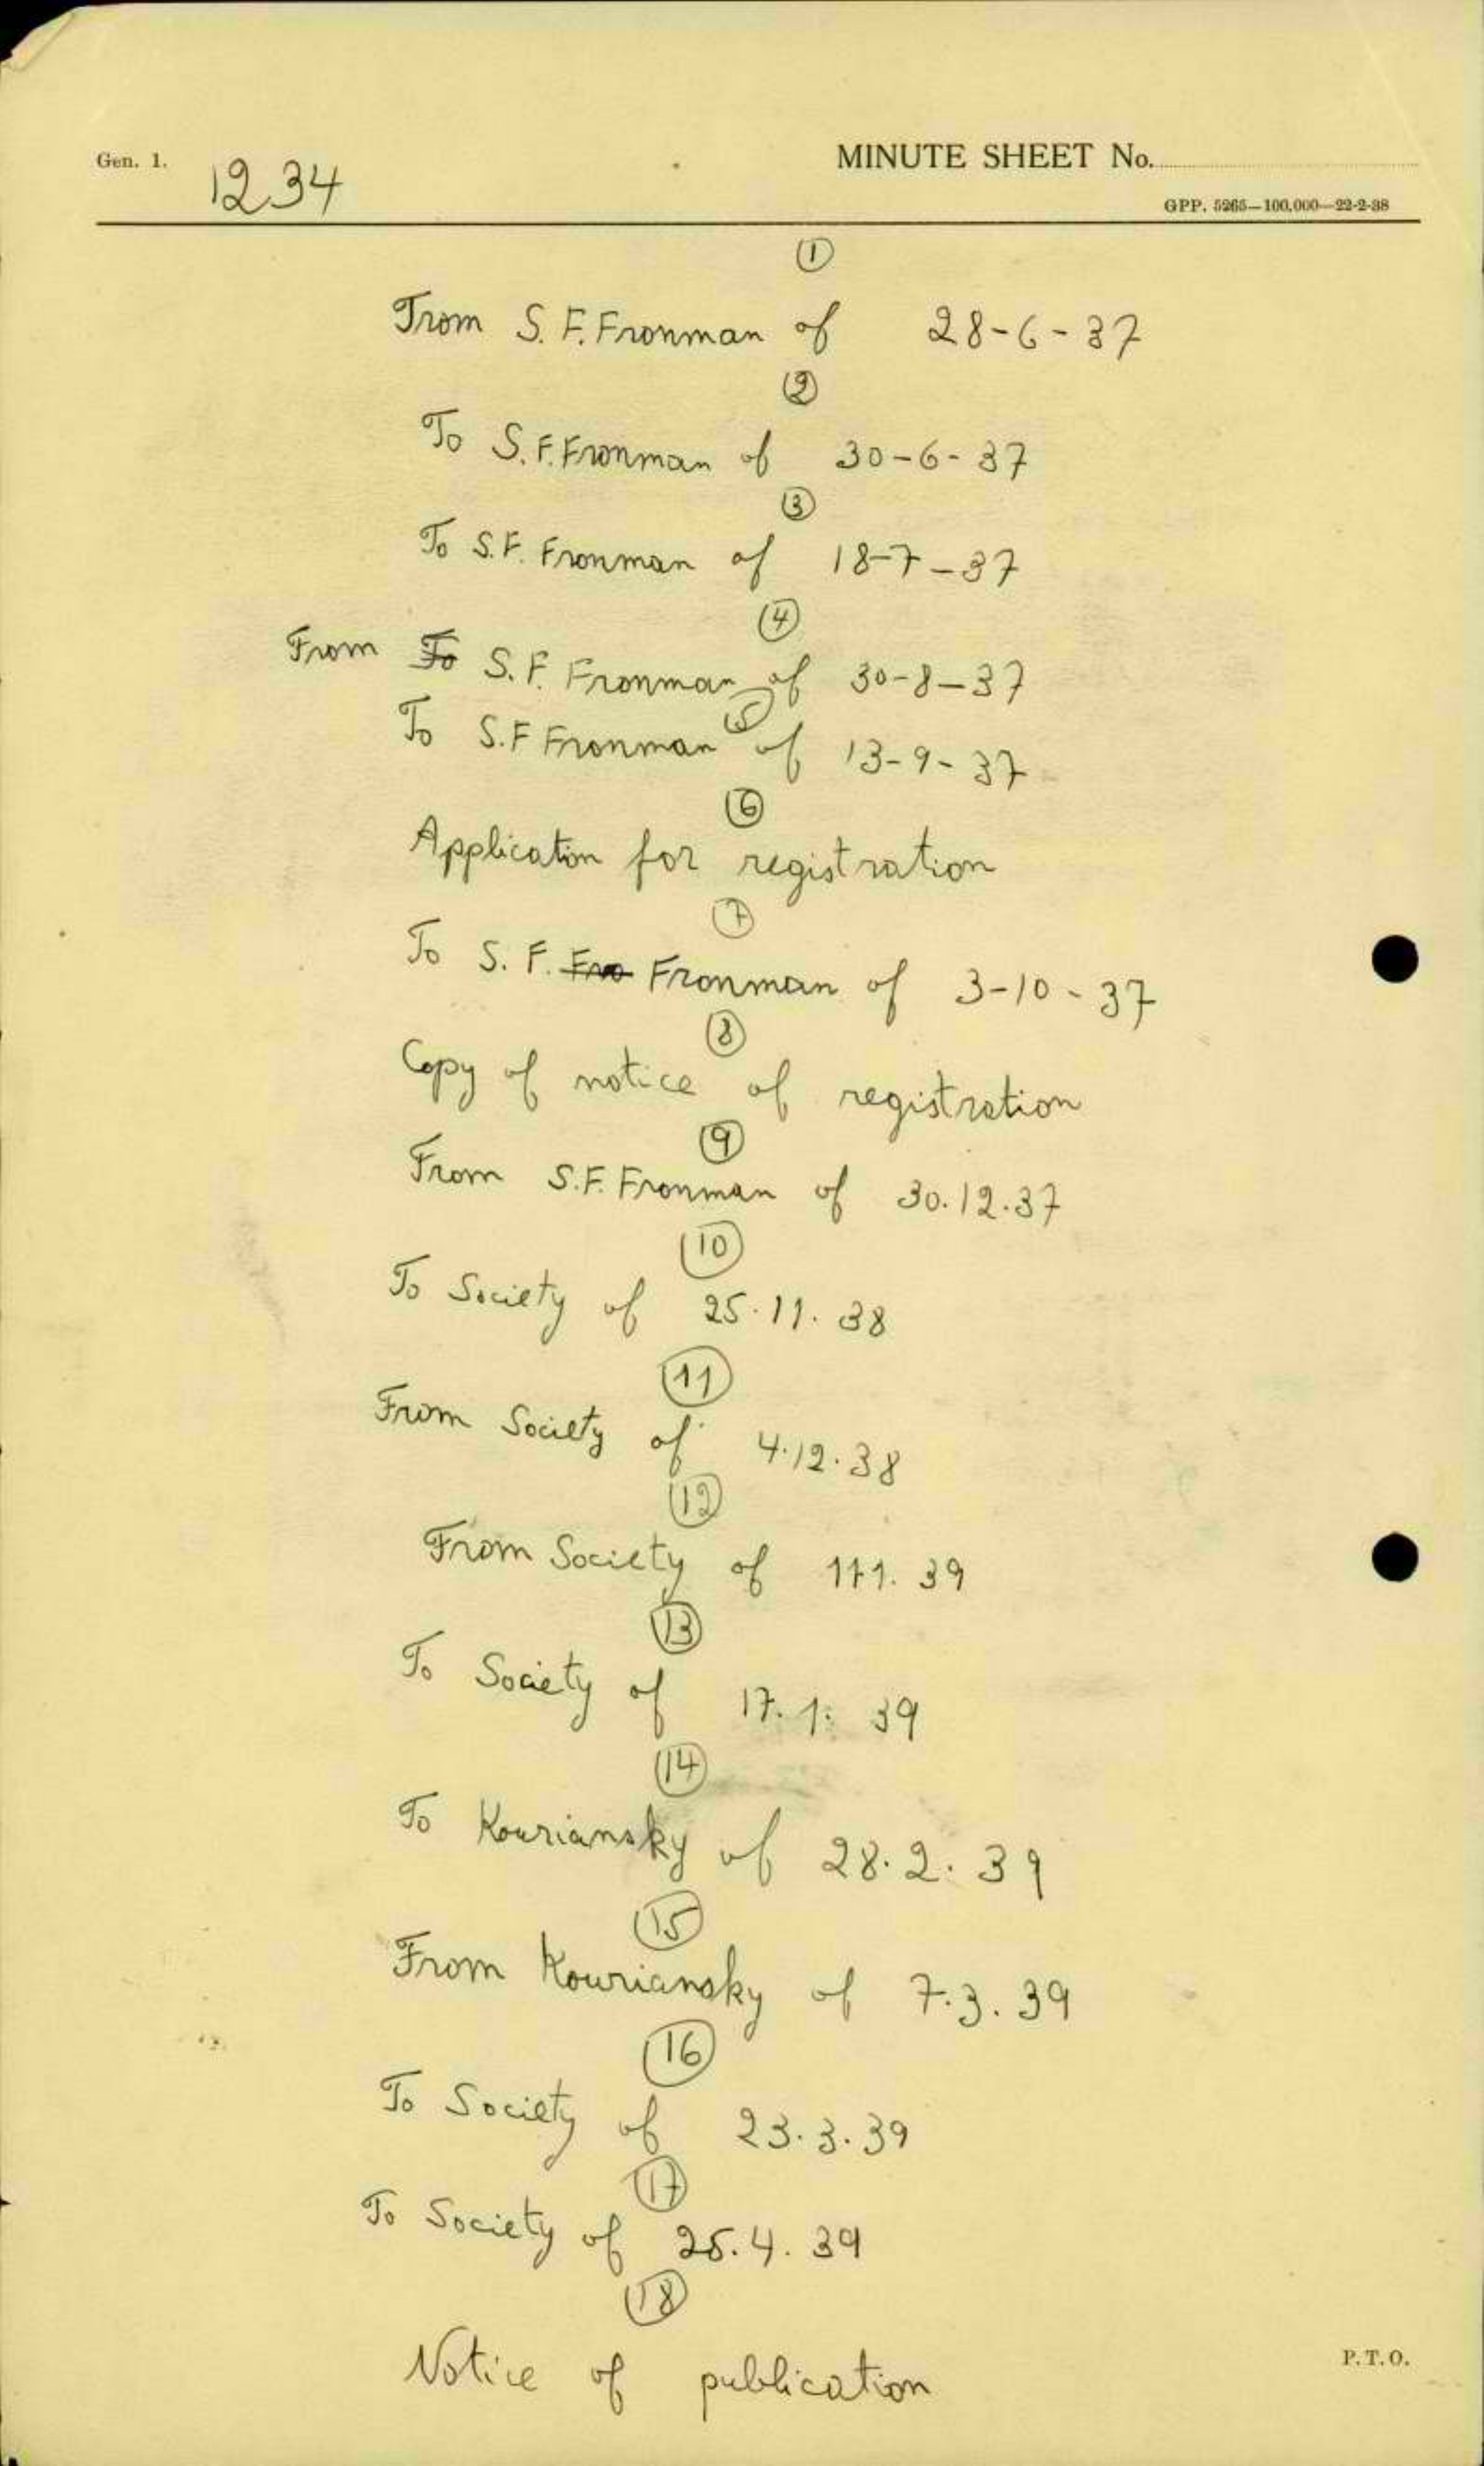 Gen. 1.
1234
MINUTE SHEET No.
GPP. 5265—100,000—22-2-38
1
From S. F. Fronman of 28-6-37
2
To S. F. Fronman of 30-6-37
3
To S.F. Fronman of 18-7-37
4
From To S. F. Fronman of 30-8-37
5
To S.F Fronman of 13-9-37
6
Application for registration
7
To S. F. Fro Fronman of 3-10-37
8
Copy of notice of registration
9
From S.F. Fronman of 30.12.37
10
To Society of 25.11.38
11
From Society of 4.12.38
12
From Society of 39
13
To Society of 17.1.39
14
To Kouriansky of 28.2.39
15
From Kouriansky of 7.3.39
16
To Society of 23.3.39
17
To Society of 4.39
18
Notice of publication
P.T.O.